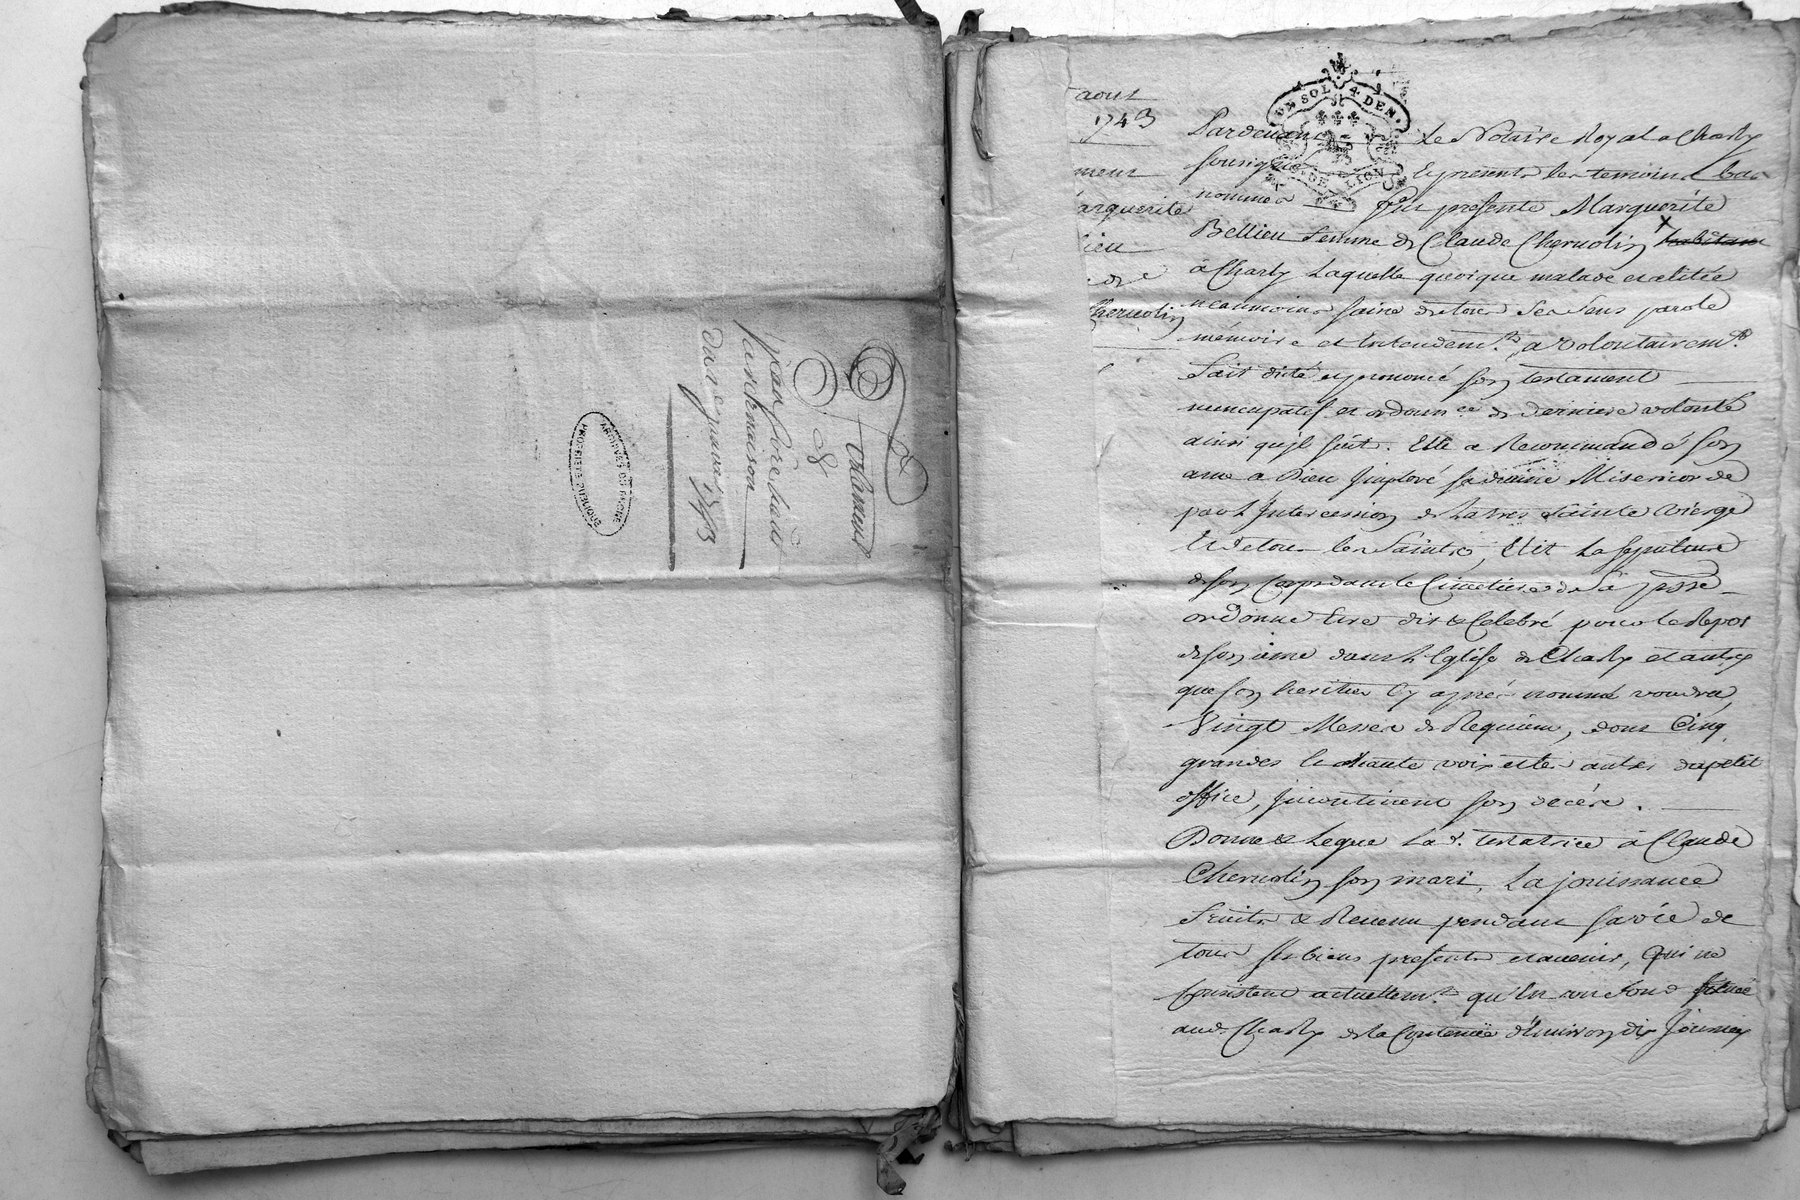 Testament
pan fore hativ
ARCHIVES DU RHONE
PROPRIETE PUBLIQUE
aoust
1743
ment
arguerite
lieu
de
Chervolin
UN SOL 4 DEN.
G. DE LION
Pardevant Le Notaire Royal a Charly
soussigné Et presents les temoins bas
nommes fut presente Marguerite
Bellieu femme de Claude Chervolin habitant
à Charly Laquelle quoique malade et alitée
neaumoins saine de tous ses sens parole
mémoire et Entendem.t, a volontairem.t
fait dicté et prononcé son testament
nuncupatif et ordonn.ce de derniere volonté
ainsi qu'jl suit. Elle a Recommandé son
ame a Dieu Jmploré sa divine Misericorde
par L'Jntercession de la tres Sainte Vierge
Et de tous les Saints, Elit La sepulture
de son Corps dans le Cimetiere de sa pssse
ordonne Etre dit & Celebré pour le Repos
de son ame dans L'Eglise de Charly et autres
que son heritier Cy aprés nommé voudra
Vingt Messes de Requiem, dont Cinq
grandes a haute voix et les autres de petit
office, Jncontinent son décés.
Donne & Legue La d. testatrice à Claude
Chervolin son mari, La jouissance
fruits & Revenu pendant sa vie de
tous ses biens presents et avenir, qui ne
Consistent actuellem.t qu'En un fond situé
aud. Charly de la Contenüe d'Environ dix Journées